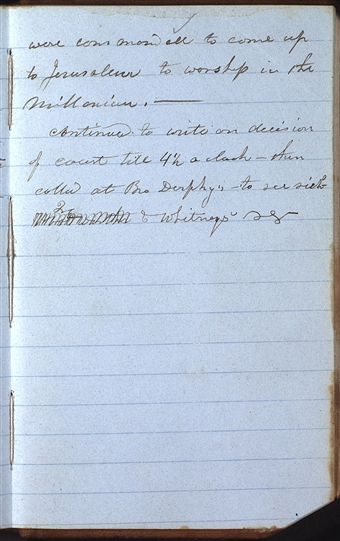 were commanded to come up
to Jerusalem to worship in the
Millenium. —
Continued to write on decision
of court till 4½ oclock – then
called at Bro Durphy's – to see sick
& Whitneys &c